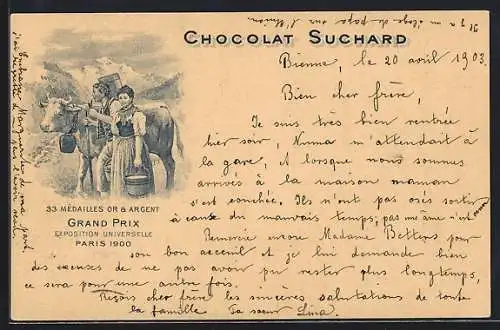 CHOCOLAT SUCHARD
Bienne, le 20 avril 1903.
Bien cher frère,
Je suis très bien rentrée
hier soir, Numa m'attendait à
la gare, et lorsque nous sommes
arrivés à la maison maman
s'est couchée. Ils n'ont pas osés sortir
à cause du mauvais temps, pas même
Remercie encore Madame Betters pour
son bon acceuil et je lui demande bien
des excuses de ne pas avoir pu rester plus longtemps,
ce sera pour une autre fois.
Reçois cher frère les sincères salutations de toute
la famille. Ta sœur Lina.
33 MÉDAILLES OR & ARGENT
GRAND PRIX
EXPOSITION UNIVERSELLE
PARIS 1900
Embrasse Marguerite de ma part,
j'ai regretté de
Il y a un éloge de papa sur